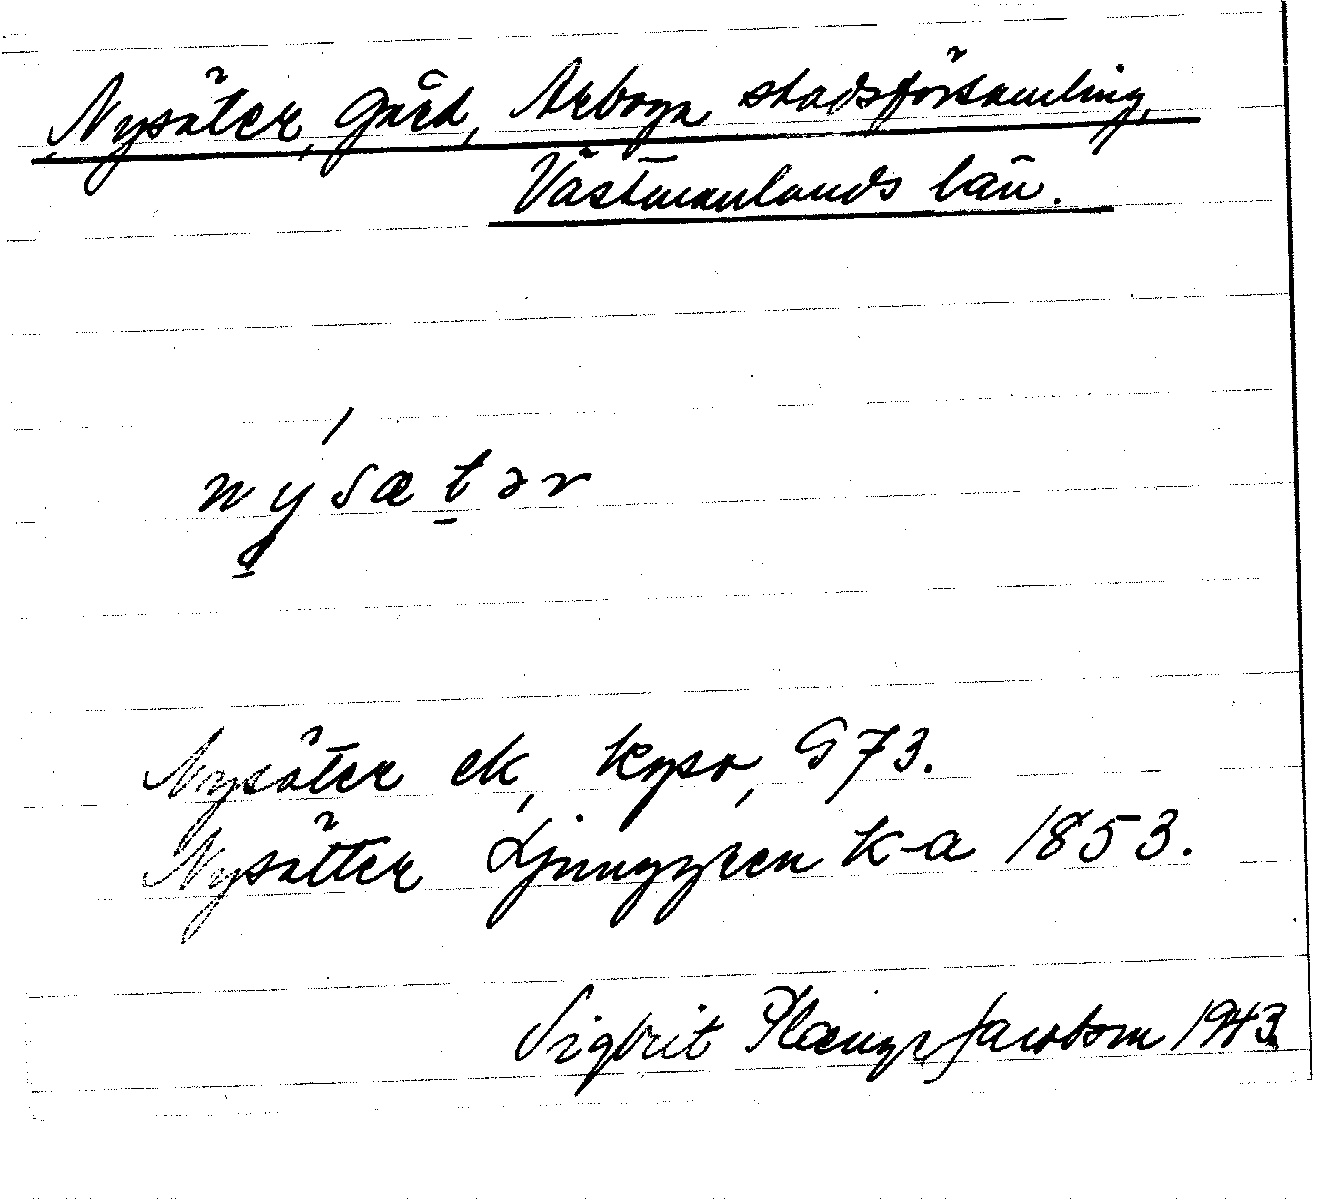 Nysäter, gård, Arboga stadsförsamling,
Västmanlands län.
nýsætər
Nysäter ek, kopo, G73.
Nysätter Ljunggren k-a 1853.
Sigbrit Plænge Jacobson 1943